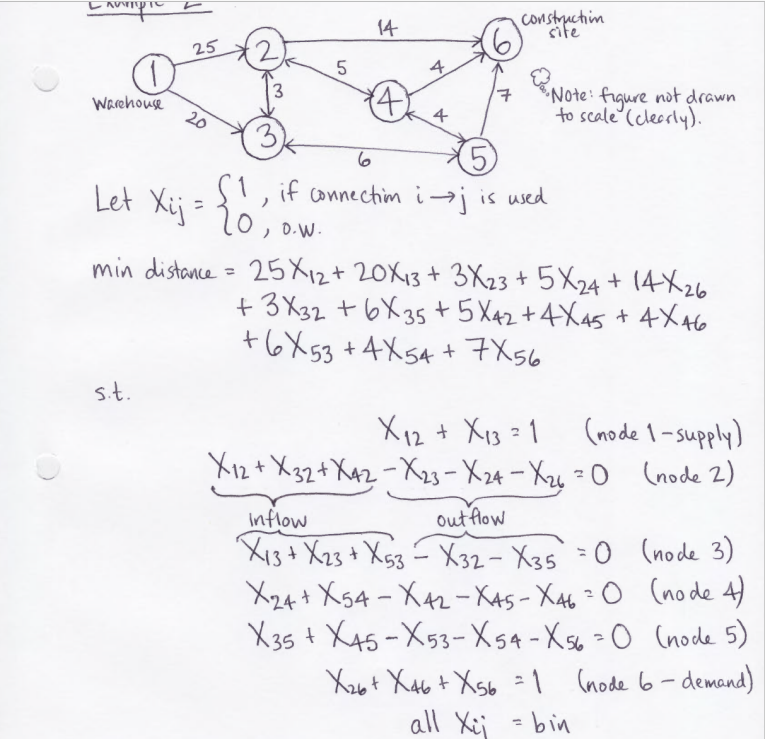 Example 2
25
14
construction
site
1
2
6
5
4
3
Warehouse
20
4
7
Note: figure not drawn
to scale (clearly).
3
4
5
6
Let Xij = { 1, if connection i→j is used
0, o.w.
min distance = 25X12 + 20X13 + 3X23 + 5X24 + 14X26
+ 3X32 + 6X35 + 5X42 + 4X45 + 4X46
+ 6X53 + 4X54 + 7X56
s.t.
X12 + X13 = 1 (node 1-supply)
X12 + X32 + X42 - X23 - X24 - X26 = 0 (node 2)
inflow outflow
X13 + X23 + X53 - X32 - X35 = 0 (node 3)
X24 + X54 - X42 - X45 - X46 = 0 (node 4)
X35 + X45 - X53 - X54 - X56 = 0 (node 5)
X26 + X46 + X56 = 1 (node 6 - demand)
all Xij = bin